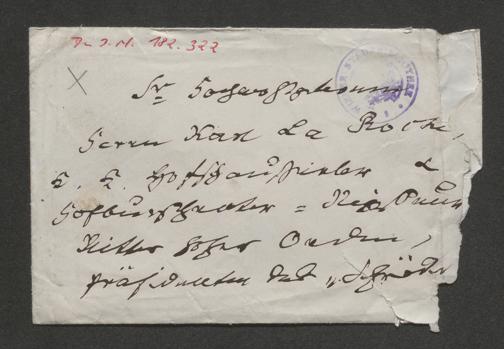 I. N. 182.322
Sr Hochwohlgeboren
Herrn Karl La Roche,
K. K. Hofschauspieler &
Hofburgtheater =
Ritter Orden,
Präsidenten des „Schröder